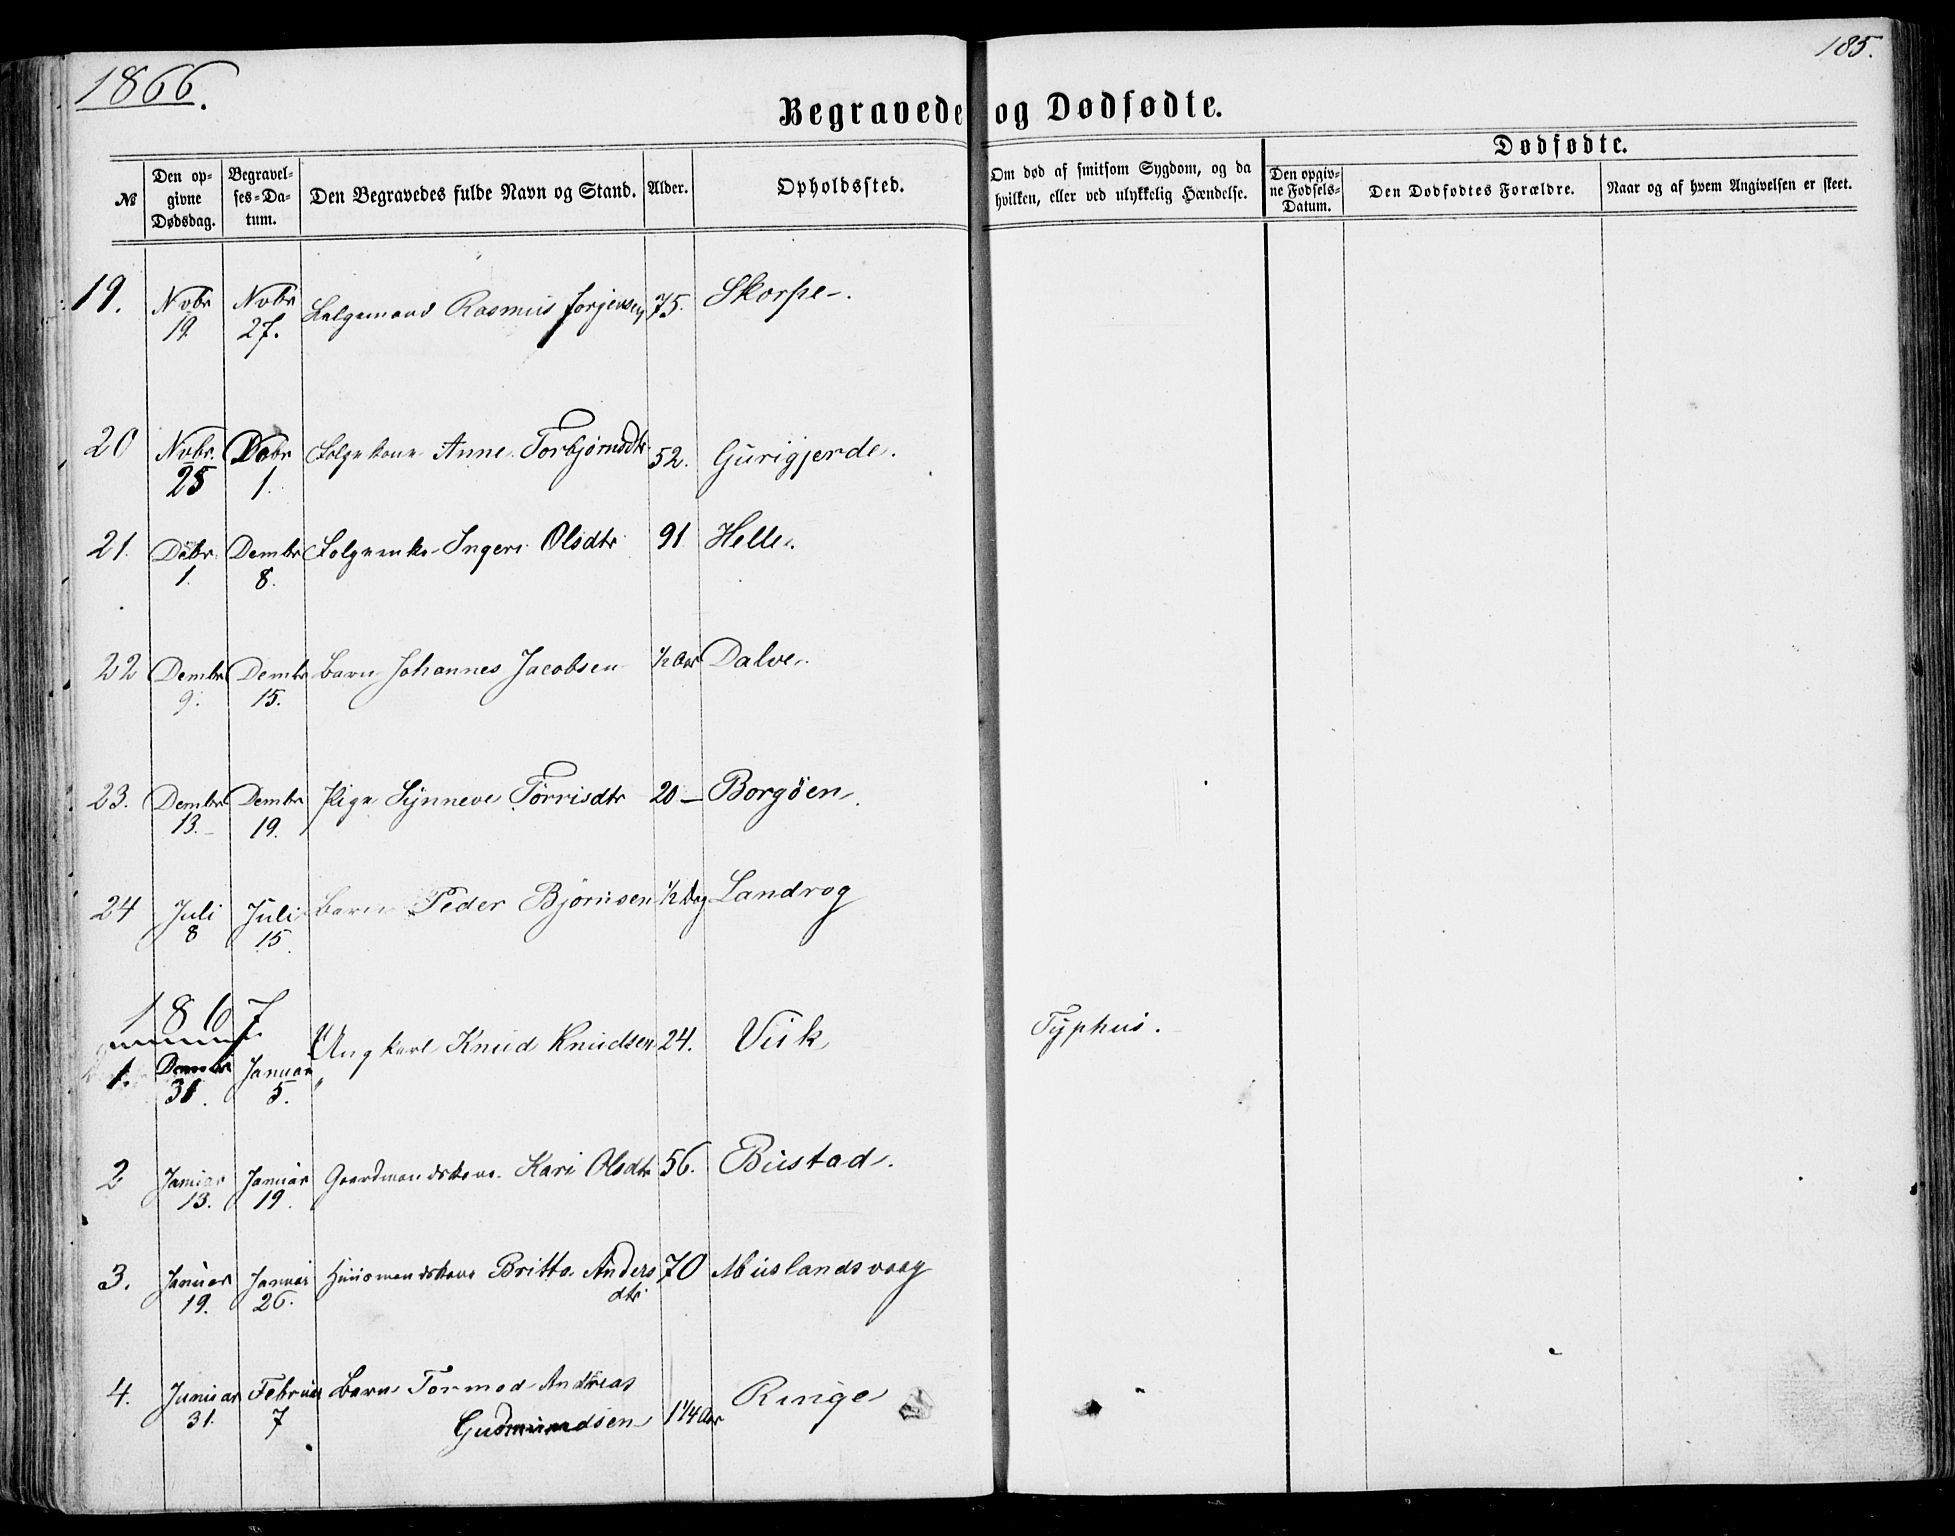 1866.
185.
Begravede og Dødfødte.
№
Den op-
givne
Dødsdag.
Begravel-
ses-Da-
tum.
Den Begravedes fulde Navn og Stand.
Alder.
Opholdssted.
Om død af smitsom Sygdom, og da
hvilken, eller ved ulykkelig Hændelse.
Dødfødte.
Den opgiv-
ne Fødsels-
Datum.
Den Dødfødtes Forældre.
Naar og af hvem Angivelsen er skeet.
19. Nvbr 19 Nvbr 27. Rasmus Jørjensen 75. Skorpe.
20 Nvbr. 25 Dcbr 1. Anne Torbjørnsdtr 52. Gurigjerde.
21. Dcbr. 1. Dembr 8. Ingeri Olsdtr 91 Helle.
22 Dembr 9. Dembr 15. Barn Johannes Jacobsen ½ Aar Dalve.
23. Dembr 13. Dembr 19. Pige Synneve Torrisdtr 20 — Borgøen.
24 Juli 8 Juli 15. Barn Peder Bjørnsen ½ Dag Landrog
1867.
1. Dembr 31. Januar 5. Ungkarl Knud Knudsen 24. Viik Typhus.
2 Januar 13. Januar 19. Gaardmandskone Kari Olsdtr 56. Bustad.
3. Januar 19. Januar 26. Huusmandskone Britta Anders 70 Muslandsvaag
dtr
4. Januar 31. Februar 7 Barn Tormod Andreas
Gudmundsen 1¼ Aar Ringe